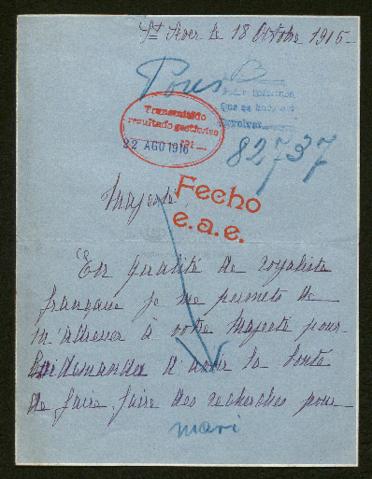 St Sever le 18 Octobre 1915
Pous
Transmitido
resultado gestiones
22 AGO 1916
Que se
82737
Majesté,
Fecho
e.a.e.
En qualité de royaliste
française je me permets de
m'adresser à votre Majesté pour
lui demander d'avoir la bonté
de faire faire des recherches pour
mari